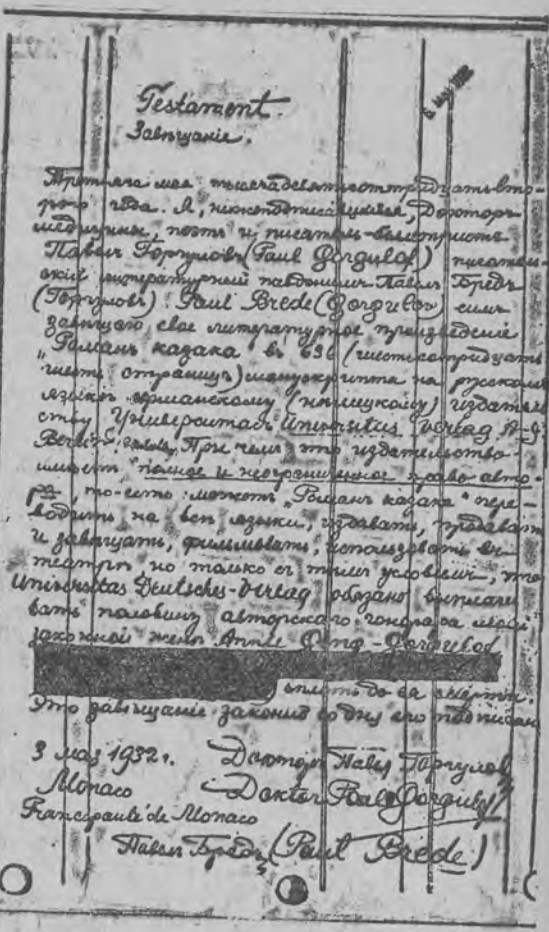 Testament.
Завѣщаніе.
Третьяго мая тысяча девятьсоттридцать вто-
рого года. Я, нижеподписавшійся, Докторъ
медицины, поэтъ и писатель-беллетристъ
Павелъ Горгуловъ (Paul Gorgulof) писатель-
скій литературный псевдонимъ Павелъ Бредъ
(Горгуловъ). Paul Brede (Gorgulof) симъ
завѣщаю, свое литературное произведеніе
"Романъ казака" въ 636 (шестьсотридцать
шесть страницъ) манускрипта на русскомъ
языкѣ германскому (нѣмецкому) издатель
ству Университасъ Universitas Verlag A-G.
Berlin. При чемъ это издательство
имѣетъ полное и неограниченное право авто-
ра, то-есть можетъ "Романъ казака" пере-
водить на всѣ языки, издавать, продавать
и завѣщать, фильмовать, использовать въ
театрѣ, но только съ тѣмъ условіемъ, что
Universitas Deutsches-Verlag обязано выплачи
вать половину авторскаго гонорара моей
законной женѣ Annie Geng-Gorgulof
вплоть до ея смерти.
Это завѣщаніе законно со дня его подписан
3 мая 1932 г. Докторъ Павелъ Горгуловъ
Monaco Doktor Paul Gorgulof
Principauté de Monaco
Павелъ Бредъ (Paul Brede)